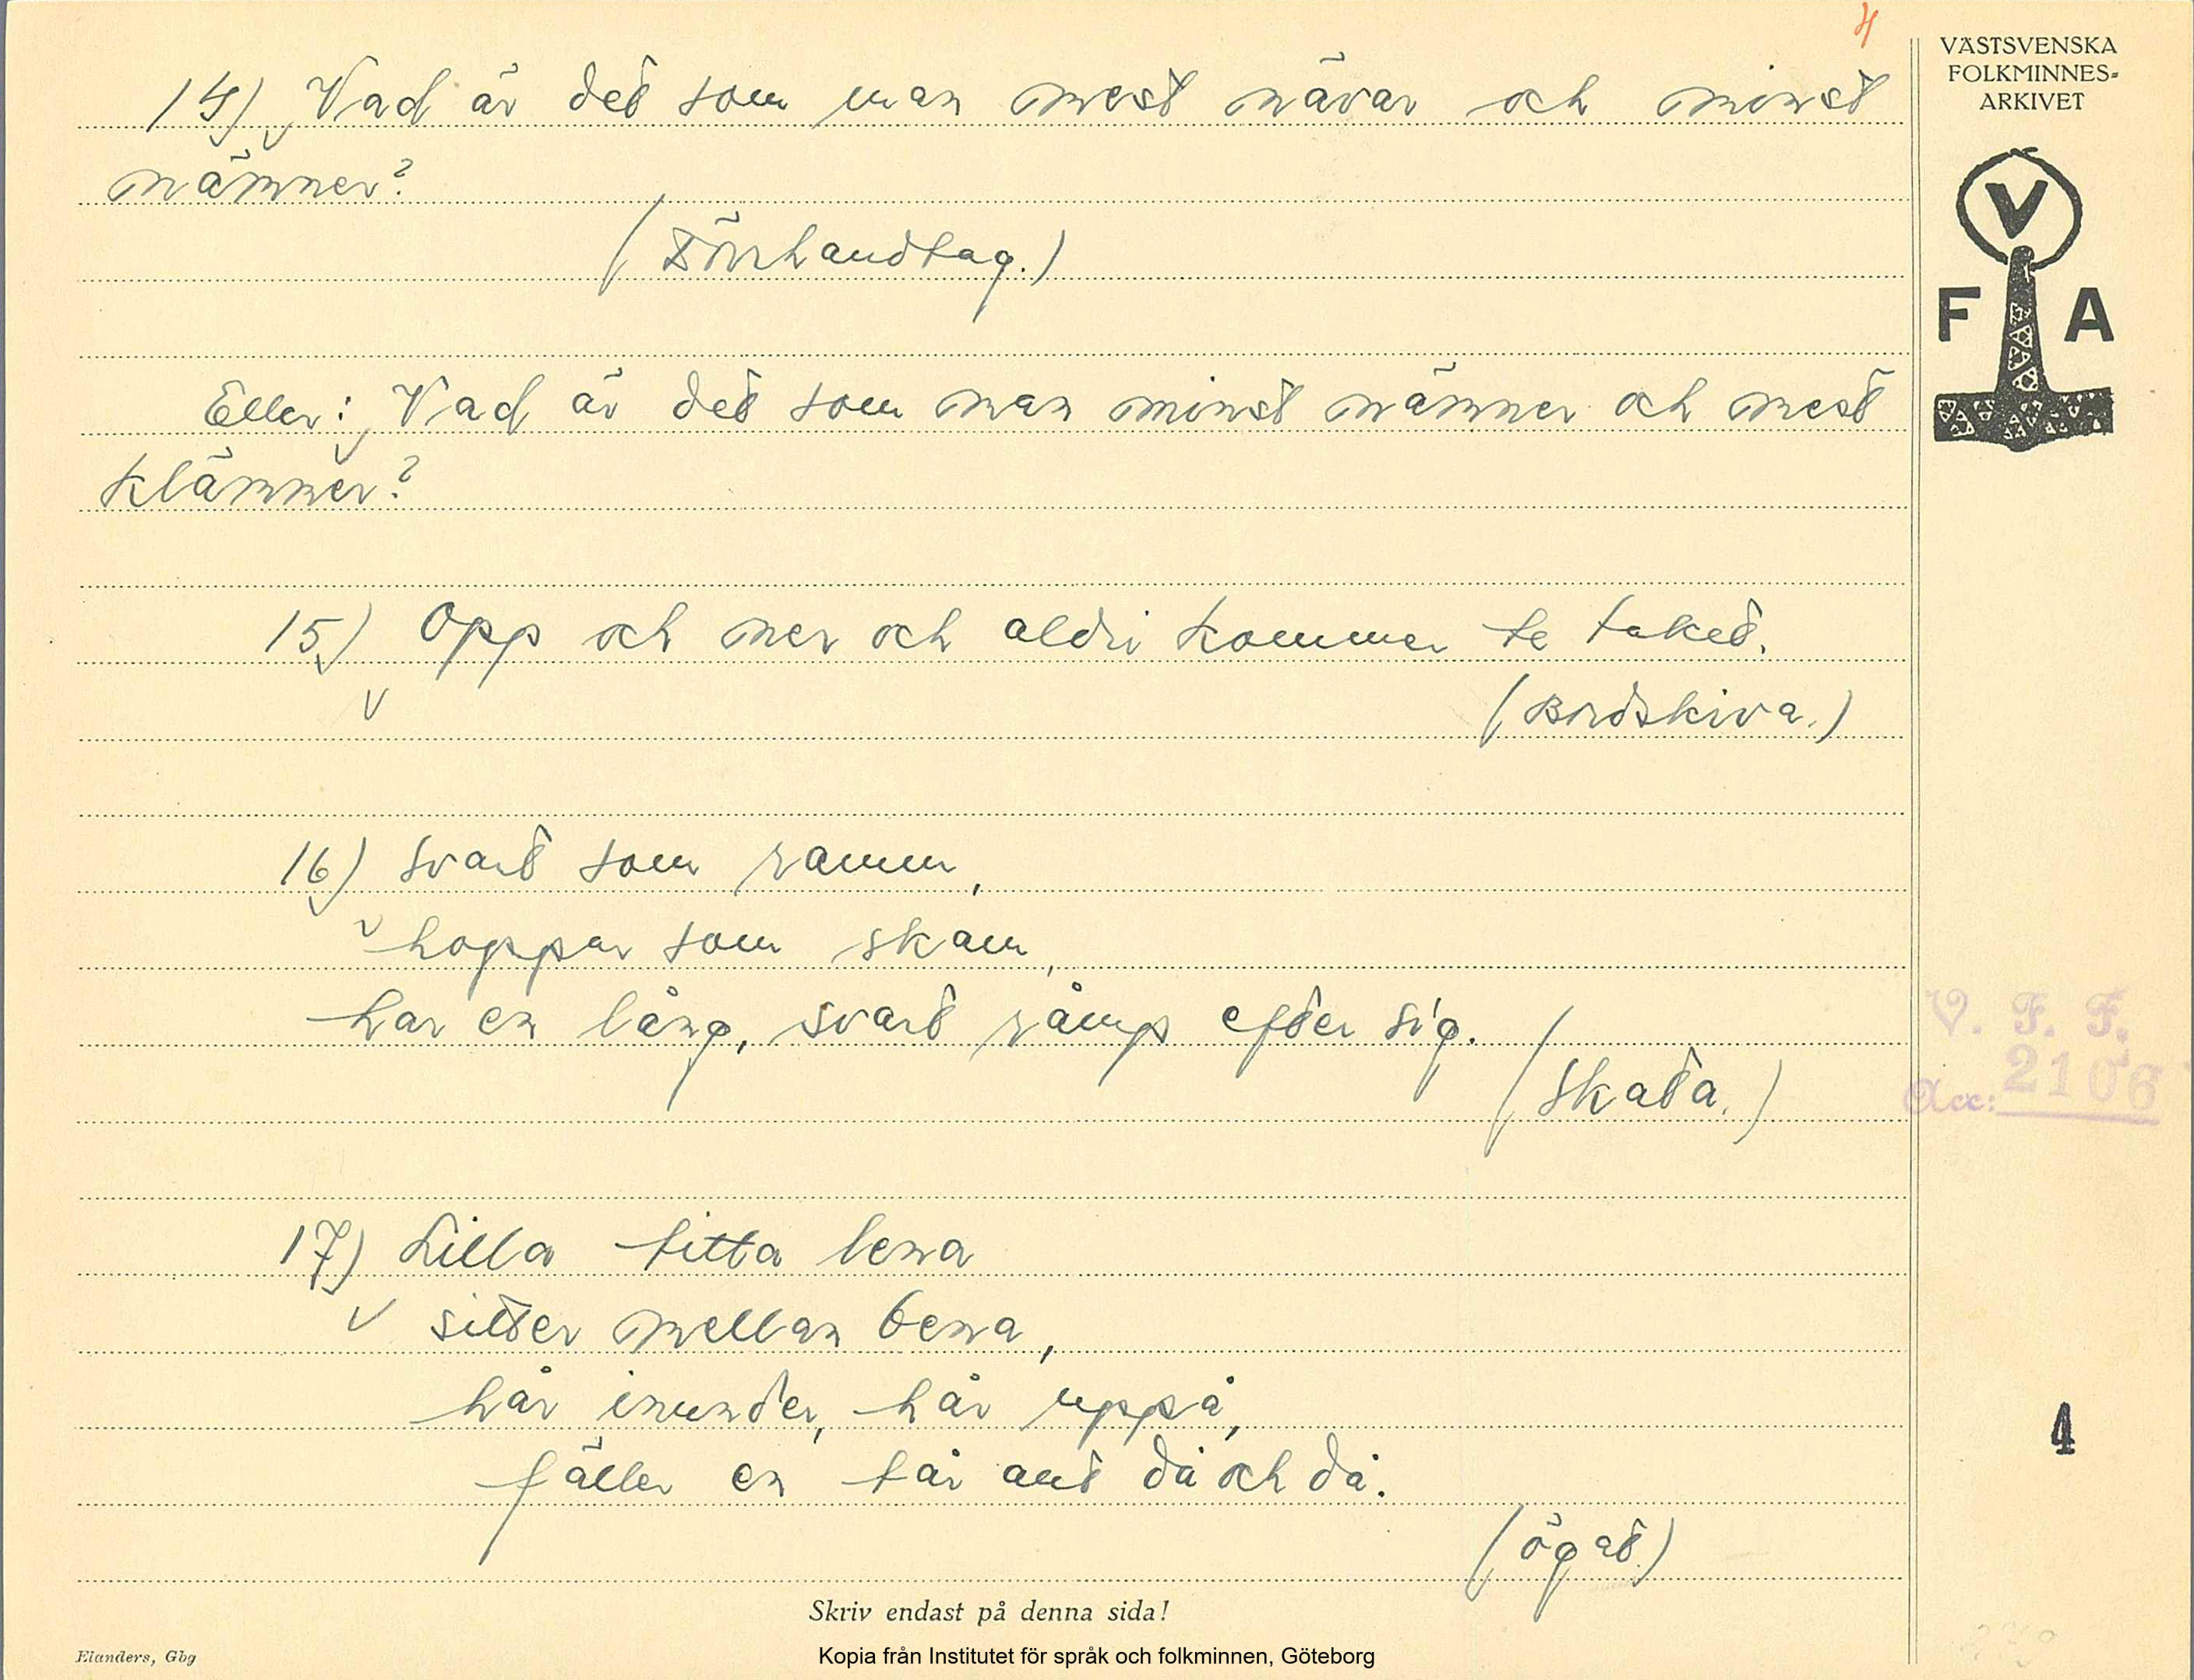 4
14) Vad är det som man mest nävar och minst
nämner?
(Dörrhandtag.)
Eller: Vad är det som man minst nämner och mest
klämmer?
15) Opp och ner och aldri kommer te taket.
(Bordskiva.)
16) Svart som ramm,
hoppar som skam,
har en lång, svart råmp efter sig.
(Skata.)
17) Lilla titta lena
sitter mellan bena,
hår inunder, hår uppå,
fäller en tår ant då och då.
(ögat)
Skriv endast på denna sida!
Elanders, Gbg
Kopia från Institutet för språk och folkminnen, Göteborg
VÄSTSVENSKA
FOLKMINNES-
ARKIVET
V
F A
V. F. F.
Acc: 2106
4